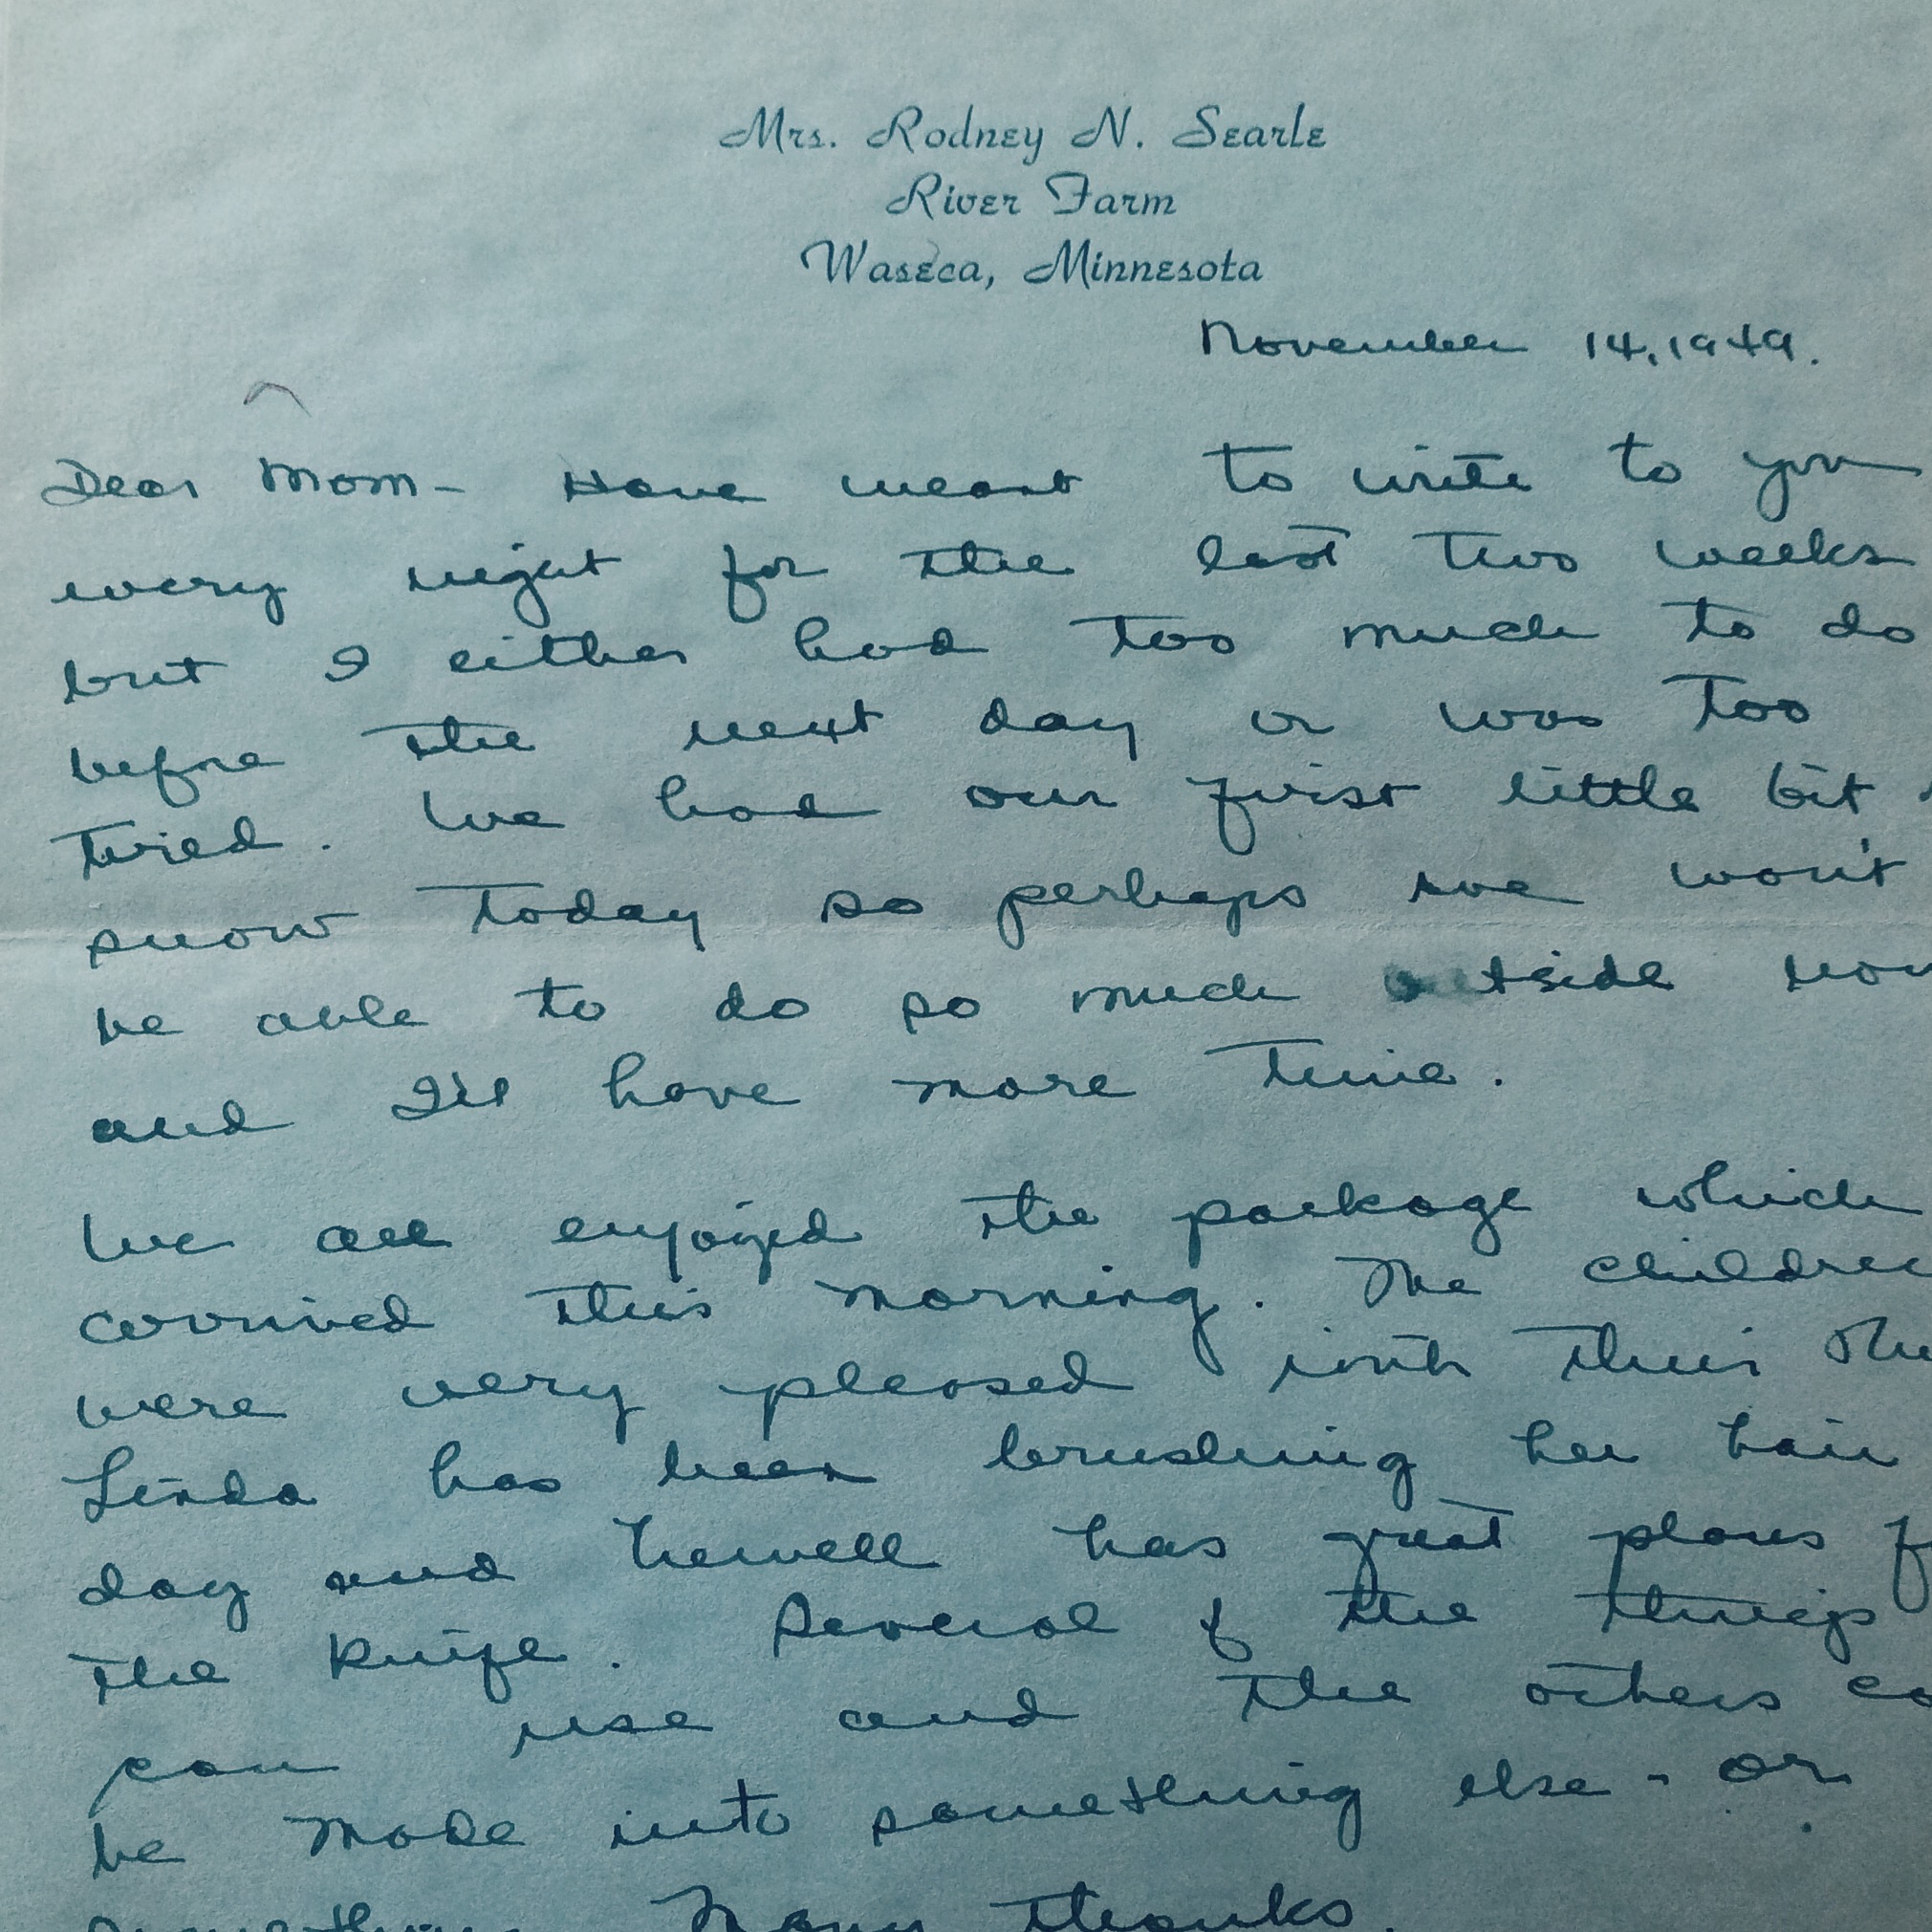 Mrs. Rodney N. Searle
River Farm
Waseca, Minnesota
November 14, 1949.
Dear Mom - Have meant to write to you
every night for the last two weeks
but I either had too much to do
before the next day or was too
tired. We had our first little bit
snow today so perhaps we won't
be able to do so much outside
and I'll have more time.
We all enjoyed the package which
arrived this morning. The children
were very pleased with their
Linda has been brushing her hair
day and has great plans
the knife. Several of the things
can use and the others
be made into something else - or
Many thanks.